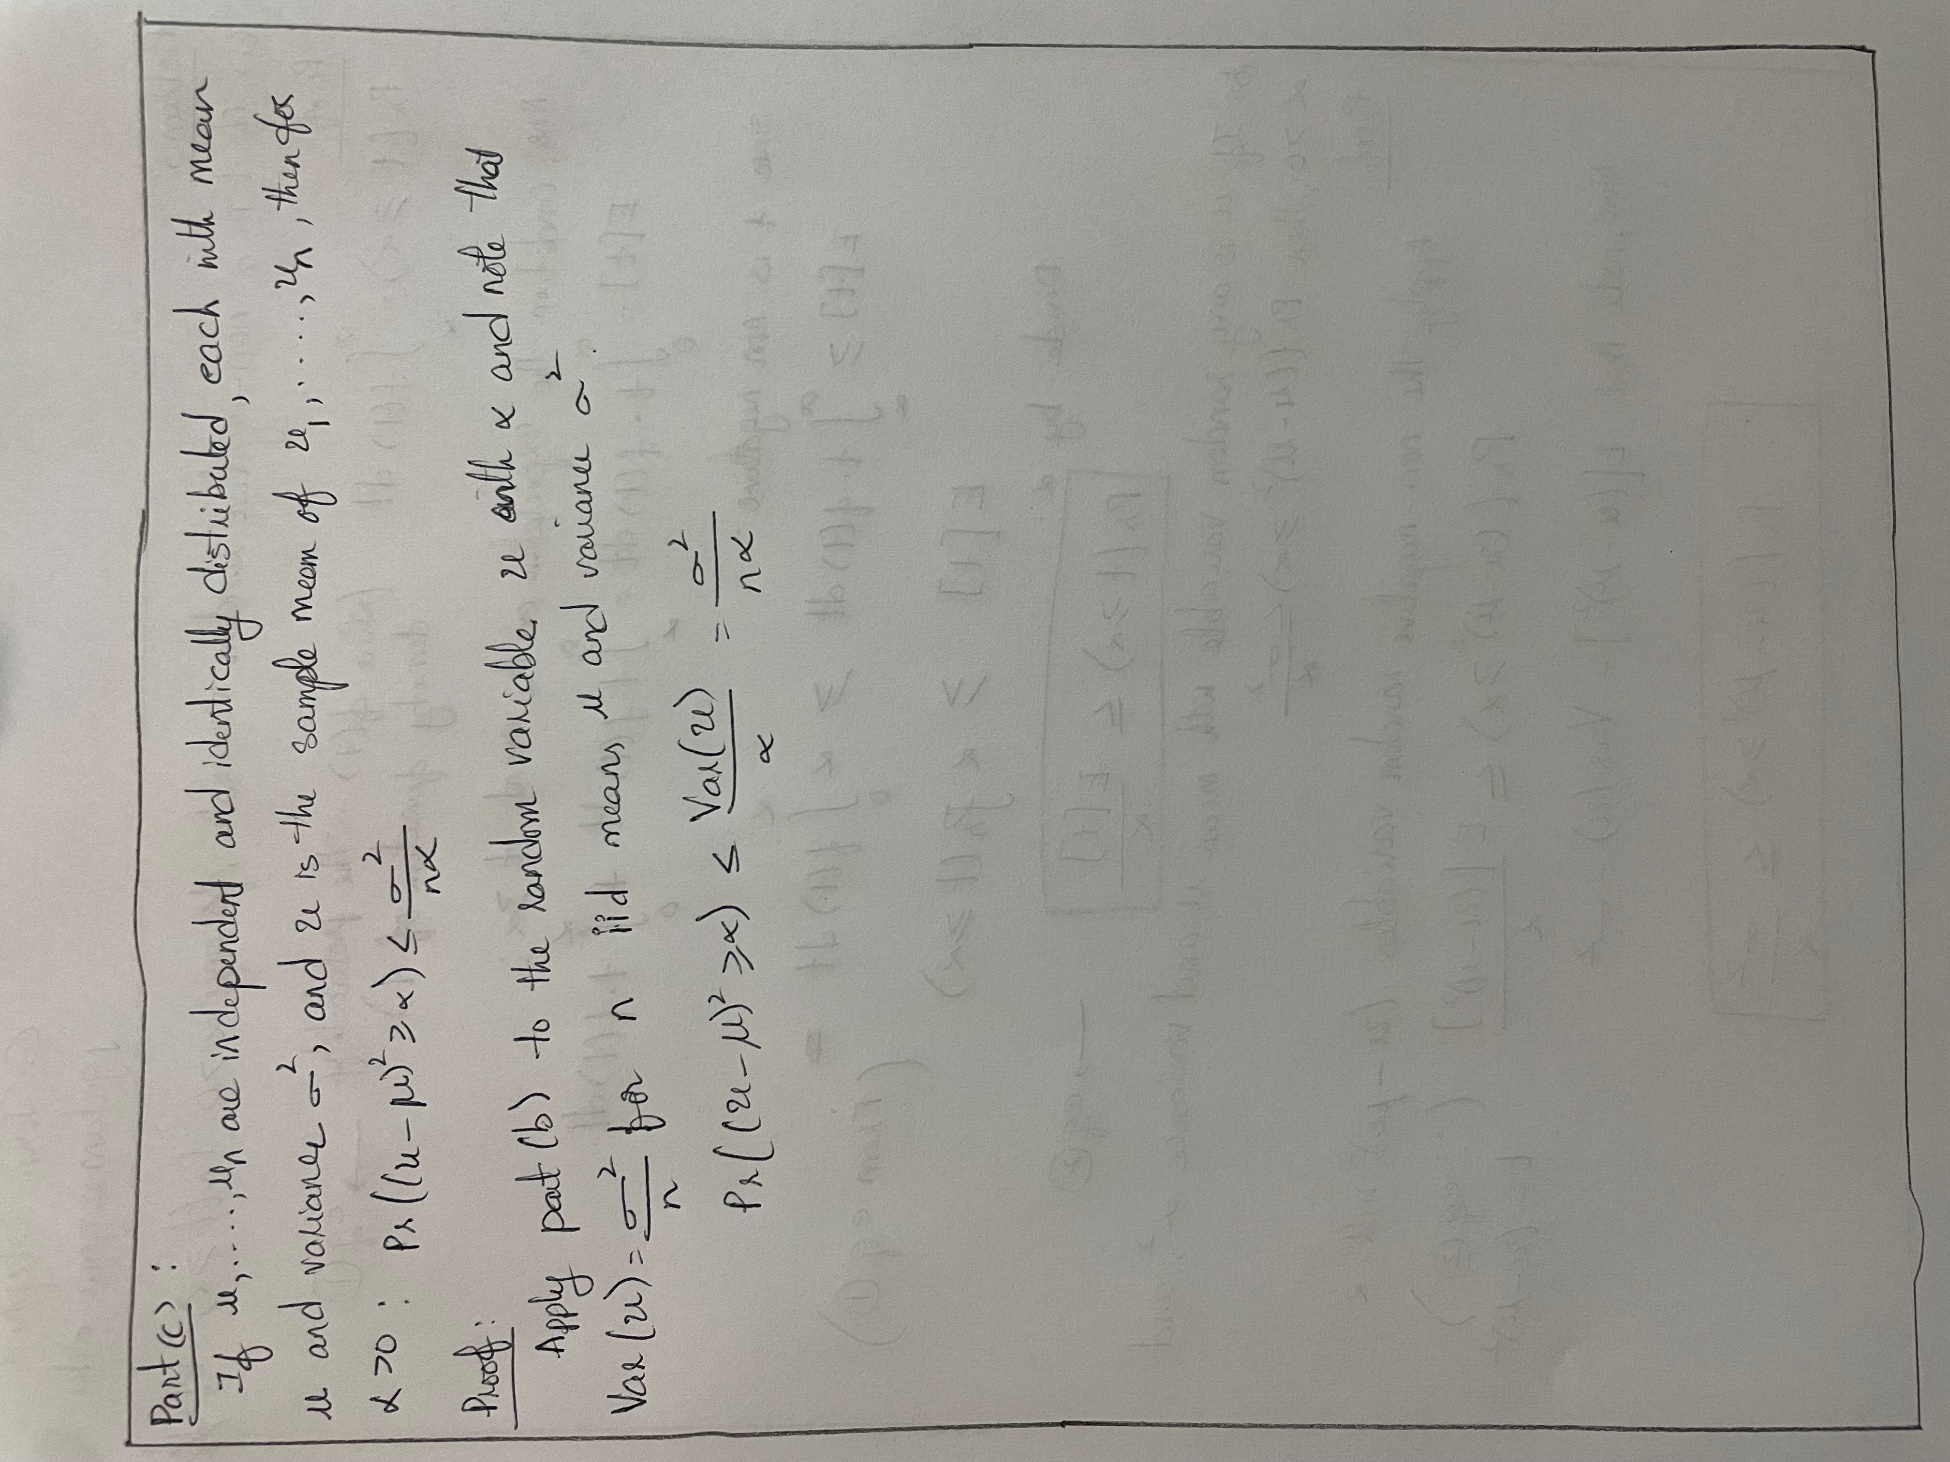 Part (c) :
If u,...,un are independent and identically distributed, each with mean
u and variance σ², and u is the sample mean of u1,.....,un, then for
α>0: Pr((u-μ)²≥α) ≤ σ²/nα
Proof:
Apply part (b) to the random variable u with α and note that
Var(u) = σ²/n for n iid means u and variance σ².
Pr((u-μ)²≥α) ≤ Var(u)/α = σ²/nα